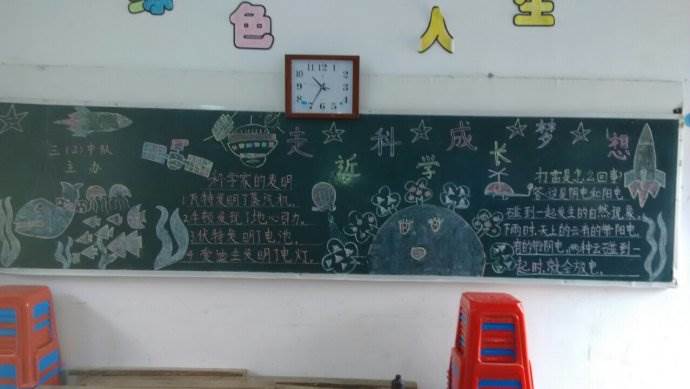 绿色人生
走近科学 成长梦想
三(2)中队
主办
科学家的发明
1.瓦特发明了蒸汽机。
2.牛顿发现了地心引力。
3.伏特发明了电池。
4.爱迪生发明了电灯。
打雷是怎么回事?
答:这是阴电和阳电
碰到一起发生的自然现象,
下雨时,天上的云有的带阳电,
有的带阴电,两种云碰到一
起时,就会放电。